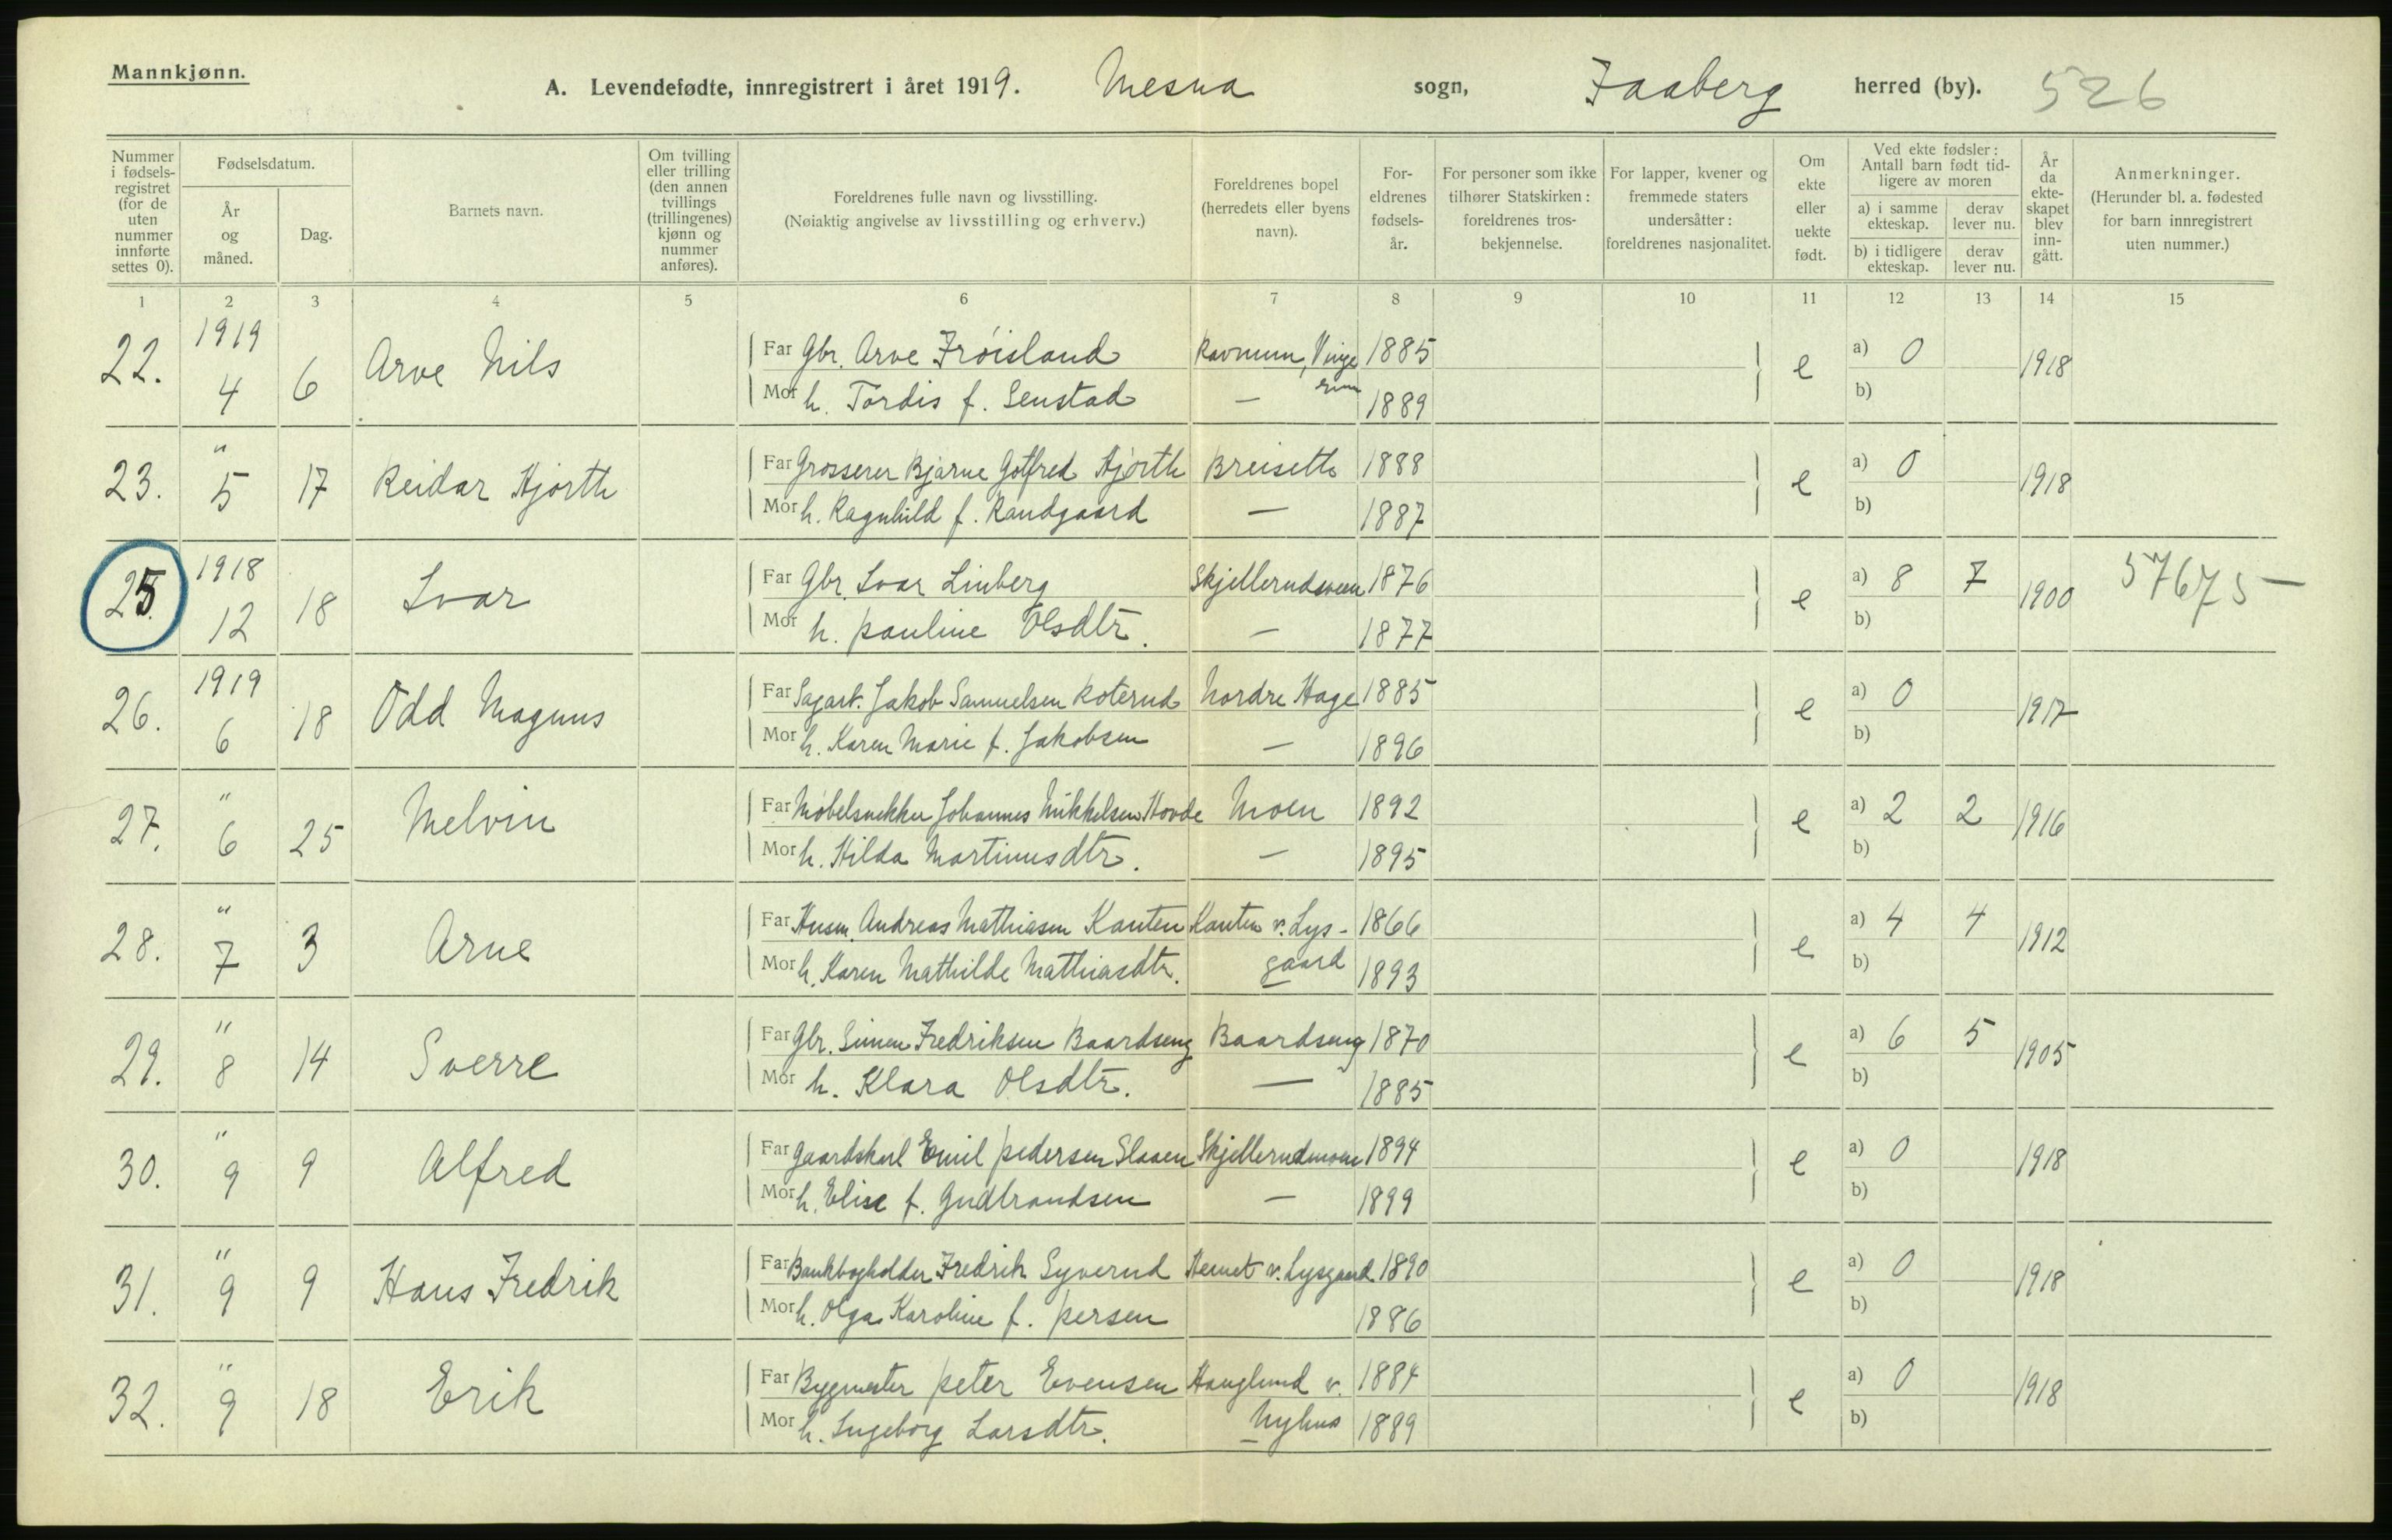 Mannkjønn.
A. Levendefødte, innregistrert i året 1919. Mesna sogn, Faaberg herred (by). 526
Nummer i fødsels-registret (for de uten nummer innførte settes 0).
Fødselsdatum.
År og måned.
Dag.
Barnets navn.
Om tvilling eller trilling (den annen tvillings (trillingenes) kjønn og nummer anføres).
Foreldrenes fulle navn og livsstilling.
(Nøiaktig angivelse av livsstilling og erhverv.)
Foreldrenes bopel (herredets eller byens navn).
For-eldrenes fødsels-år.
For personer som ikke tilhører Statskirken: foreldrenes tros-bekjennelse.
For lapper, kvener og fremmede staters undersåtter: foreldrenes nasjonalitet.
Om ekte eller uekte født.
Ved ekte fødsler: Antall barn født tid-ligere av moren
a) i samme ekteskap.
derav lever nu.
b) i tidligere ekteskap.
derav lever nu.
År da ekte-skapet blev inn-gått.
Anmerkninger.
(Herunder bl. a. fødested for barn innregistrert uten nummer.)
1 2 3 4 5 6 7 8 9 10 11 12 13 14 15
22. 1919 4 6 Arve Nils Far Gbr. Arve Frøisland Ravnum, Vinge 1885 e a) 0 1918
Mor h. Tordis f. Senstad — rum 1889 b)
23. " 5 17 Reidar Hjorth Far Grosserer Bjarne Gotfred Hjorth Breiseth 1888 e a) 0 1918
Mor h. Ragnhild f. Randgaard — 1887 b)
25. 1918 12 18 Ivar Far Gbr. Ivar Linberg Skjellerudsveen 1876 e a) 8 7 1900 57675 —
Mor h. Pauline Olsdtr. — 1877 b)
26. 1919 6 18 Odd Magnus Far Sagarb. Jakob Samuelsen Roterud Nordre Hage 1885 e a) 0 1917
Mor h. Karen Marie f. Jakobsen — 1896 b)
27. " 6 25 Melvin Far Møbelsnekker Johannes Mikkelsen Hovde Moen 1892 e a) 2 2 1916
Mor h. Hilda Martinusdtr. — 1895 b)
28. " 7 3 Arne Far Husm. Andreas Mathiasen Kanten Kanten v. Lys- 1866 e a) 4 4 1912
Mor h. Karen Mathilde Mathiasdtr. gaard 1893 b)
29. " 8 14 Sverre Far Gbr. Simen Fredriksen Baardseng Baardseng 1870 e a) 6 5 1905
Mor h. Klara Olsdtr. — 1885 b)
30. " 9 9 Alfred Far Gaardskarl Emil Pedersen Slaaen Skjellerudmoen 1894 e a) 0 1918
Mor h. Elise f. Gudbrandsen — 1899 b)
31. " 9 9 Hans Fredrik Far Bankbogholder Fredrik Syverud Hemet v. Lysgaard 1890 e a) 0 1918
Mor h. Olga Karoline f. Persen 1886 b)
32. " 9 18 Erik Far Bygmester Peter Evensen Hauglund v. 1884 e a) 0 1918
Mor h. Ingeborg Larsdtr. Nyhus 1889 b)